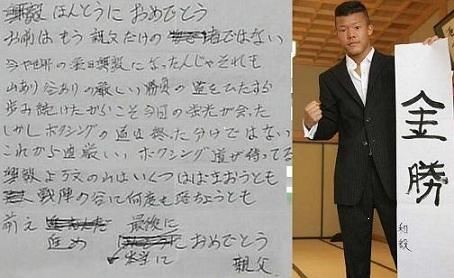 ほんとうに おめでとう
お前はもう親父だけの 者ではない
今や世界の になったんじゃそれも
山あり谷ありの厳しい勝負の道をひたすら
歩み続けたからこそ今日の栄光が会った
しかしボクシングの道は終った分けではない
これから直厳しいボクシング道が待ってる
よ万丈の山はいくつはばまおうとも
戦陣の谷に何度も落ちようとも
前え 最後に
進め おめでとう
本当に 親父
金勝
和毅